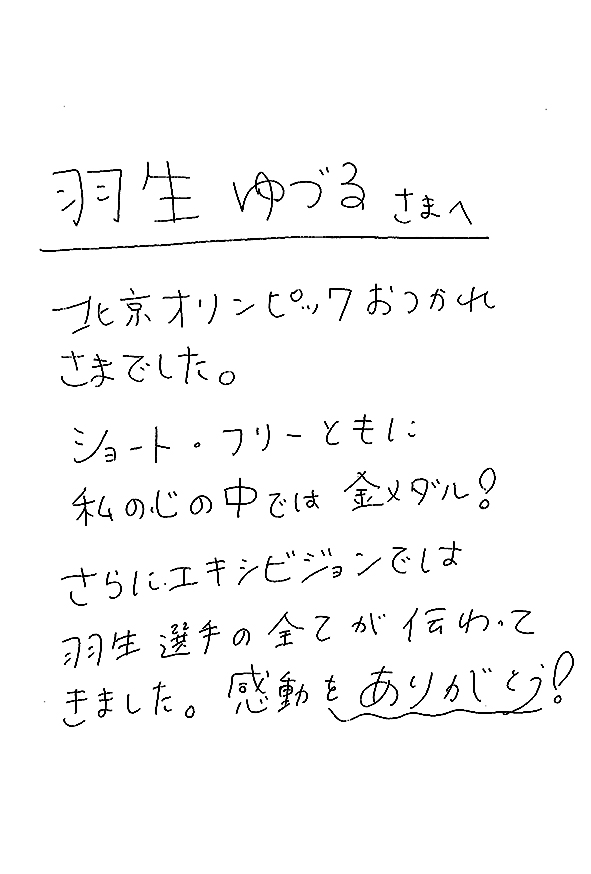 羽生ゆづるさまへ
北京オリンピックおつかれ
さまでした。
ショート・フリーともに
私の心の中では金メダル!
さらにエキシビジョンでは
羽生選手の全てが伝わって
きました。感動をありがとう!